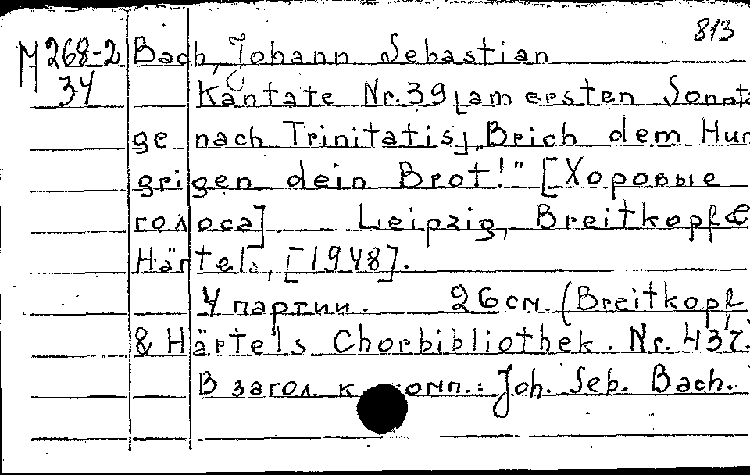 813
М 268-2 Bach, Johann Sebastian
34 Kantate Nr. 39 [am ersten Sonnta
ge nach Trinitatis] „Brich dem Hun
grigen dein Brot!" [Хоровые
голоса]. Leipzig, Breitkopf &
Härtels, [1948].
4 партии. 26 см. (Breitkopf
& Härtels Chorbibliothek. Nr. 437.
В загол. к комп.: Joh. Seb. Bach.